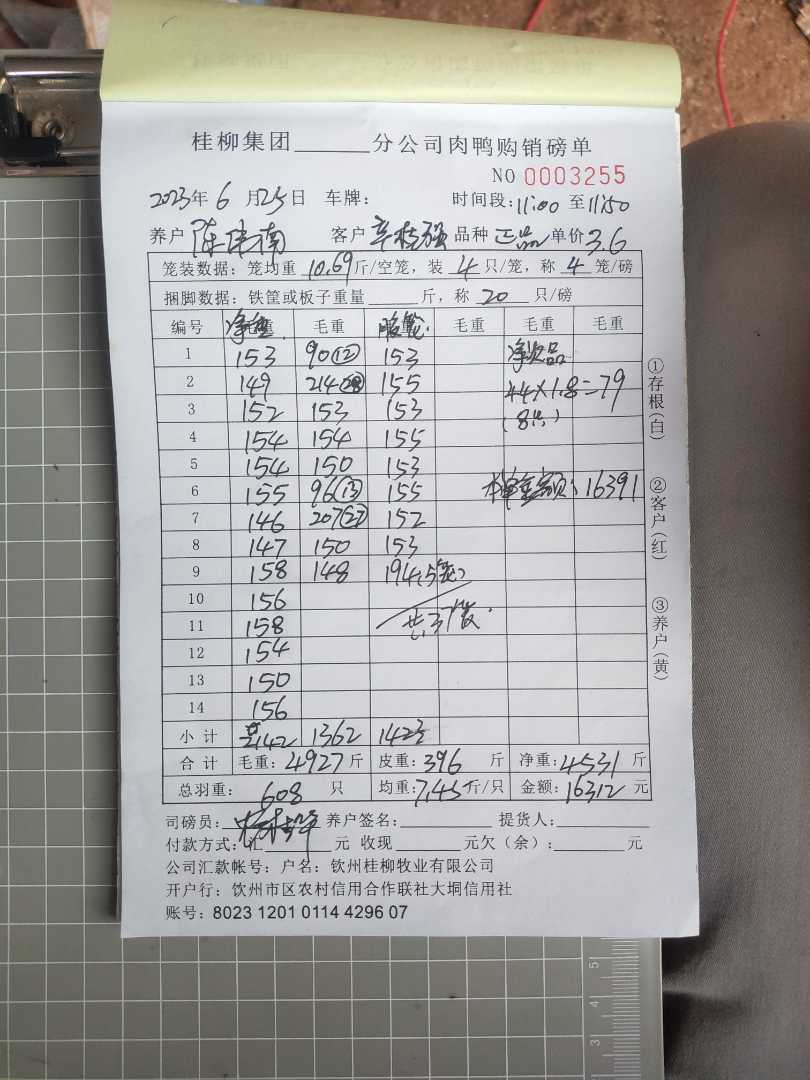 桂柳集团______分公司肉鸭购销磅单
NO 0003255
2023年 6 月25日 车牌： 时间段：11:00 至 11:50
养户 陈 南 客户 辛桂强 品种 正品 单价 3.6
笼装数据：笼均重 10.69 斤/空笼，装 4 只/笼，称 4 笼/磅
捆脚数据：铁筐或板子重量______斤，称 20 只/磅
编号 净重 毛重 毛重 毛重 毛重
1 153 90(12) 153 净次品
2 149 214(28) 155 44×1.8=79
3 152 153 153 (8只)
4 154 154 155
5 154 150 153
6 155 96(13) 155 金额：16391
7 146 207(27) 152
8 147 150 153
9 158 148 194(5笼)
10 156
11 158 共37笼
12 154
13 150
14 156
小计 2142 1362 1423
合计 毛重：4927斤 皮重：396 斤 净重：4531 斤
总羽重： 608 只 均重：7.45斤/只 金额：16312 元
司磅员： 养户签名：________ 提货人：________
付款方式：汇______元 收现______元欠（余）：______元
公司汇款帐号：户名：钦州桂柳牧业有限公司
开户行：钦州市区农村信用合作联社大垌信用社
账号：8023 1201 0114 4296 07
①存根(白) ②客户(红) ③养户(黄)
5
4
3